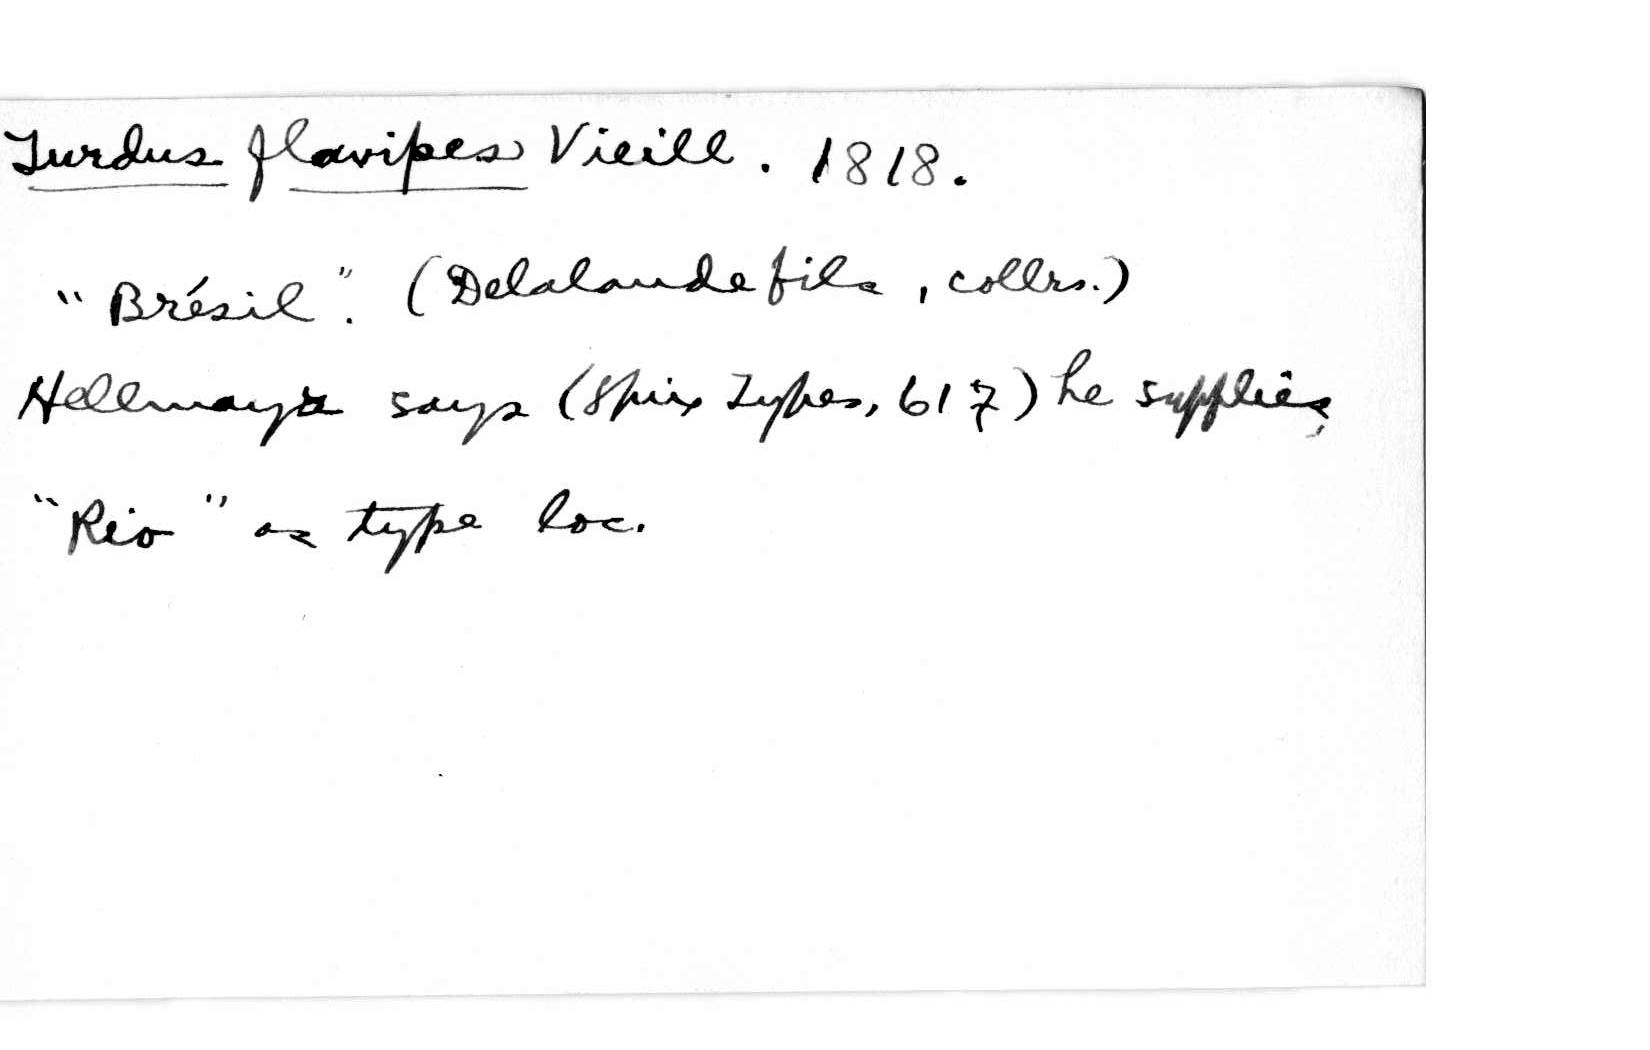 Turdus flavipes Vieill. 1818.
"Brésil". (Delalande fils, collrs.)
Hellmayr says (Spix Types, 617) he supplies,
"Rio" as type loc.